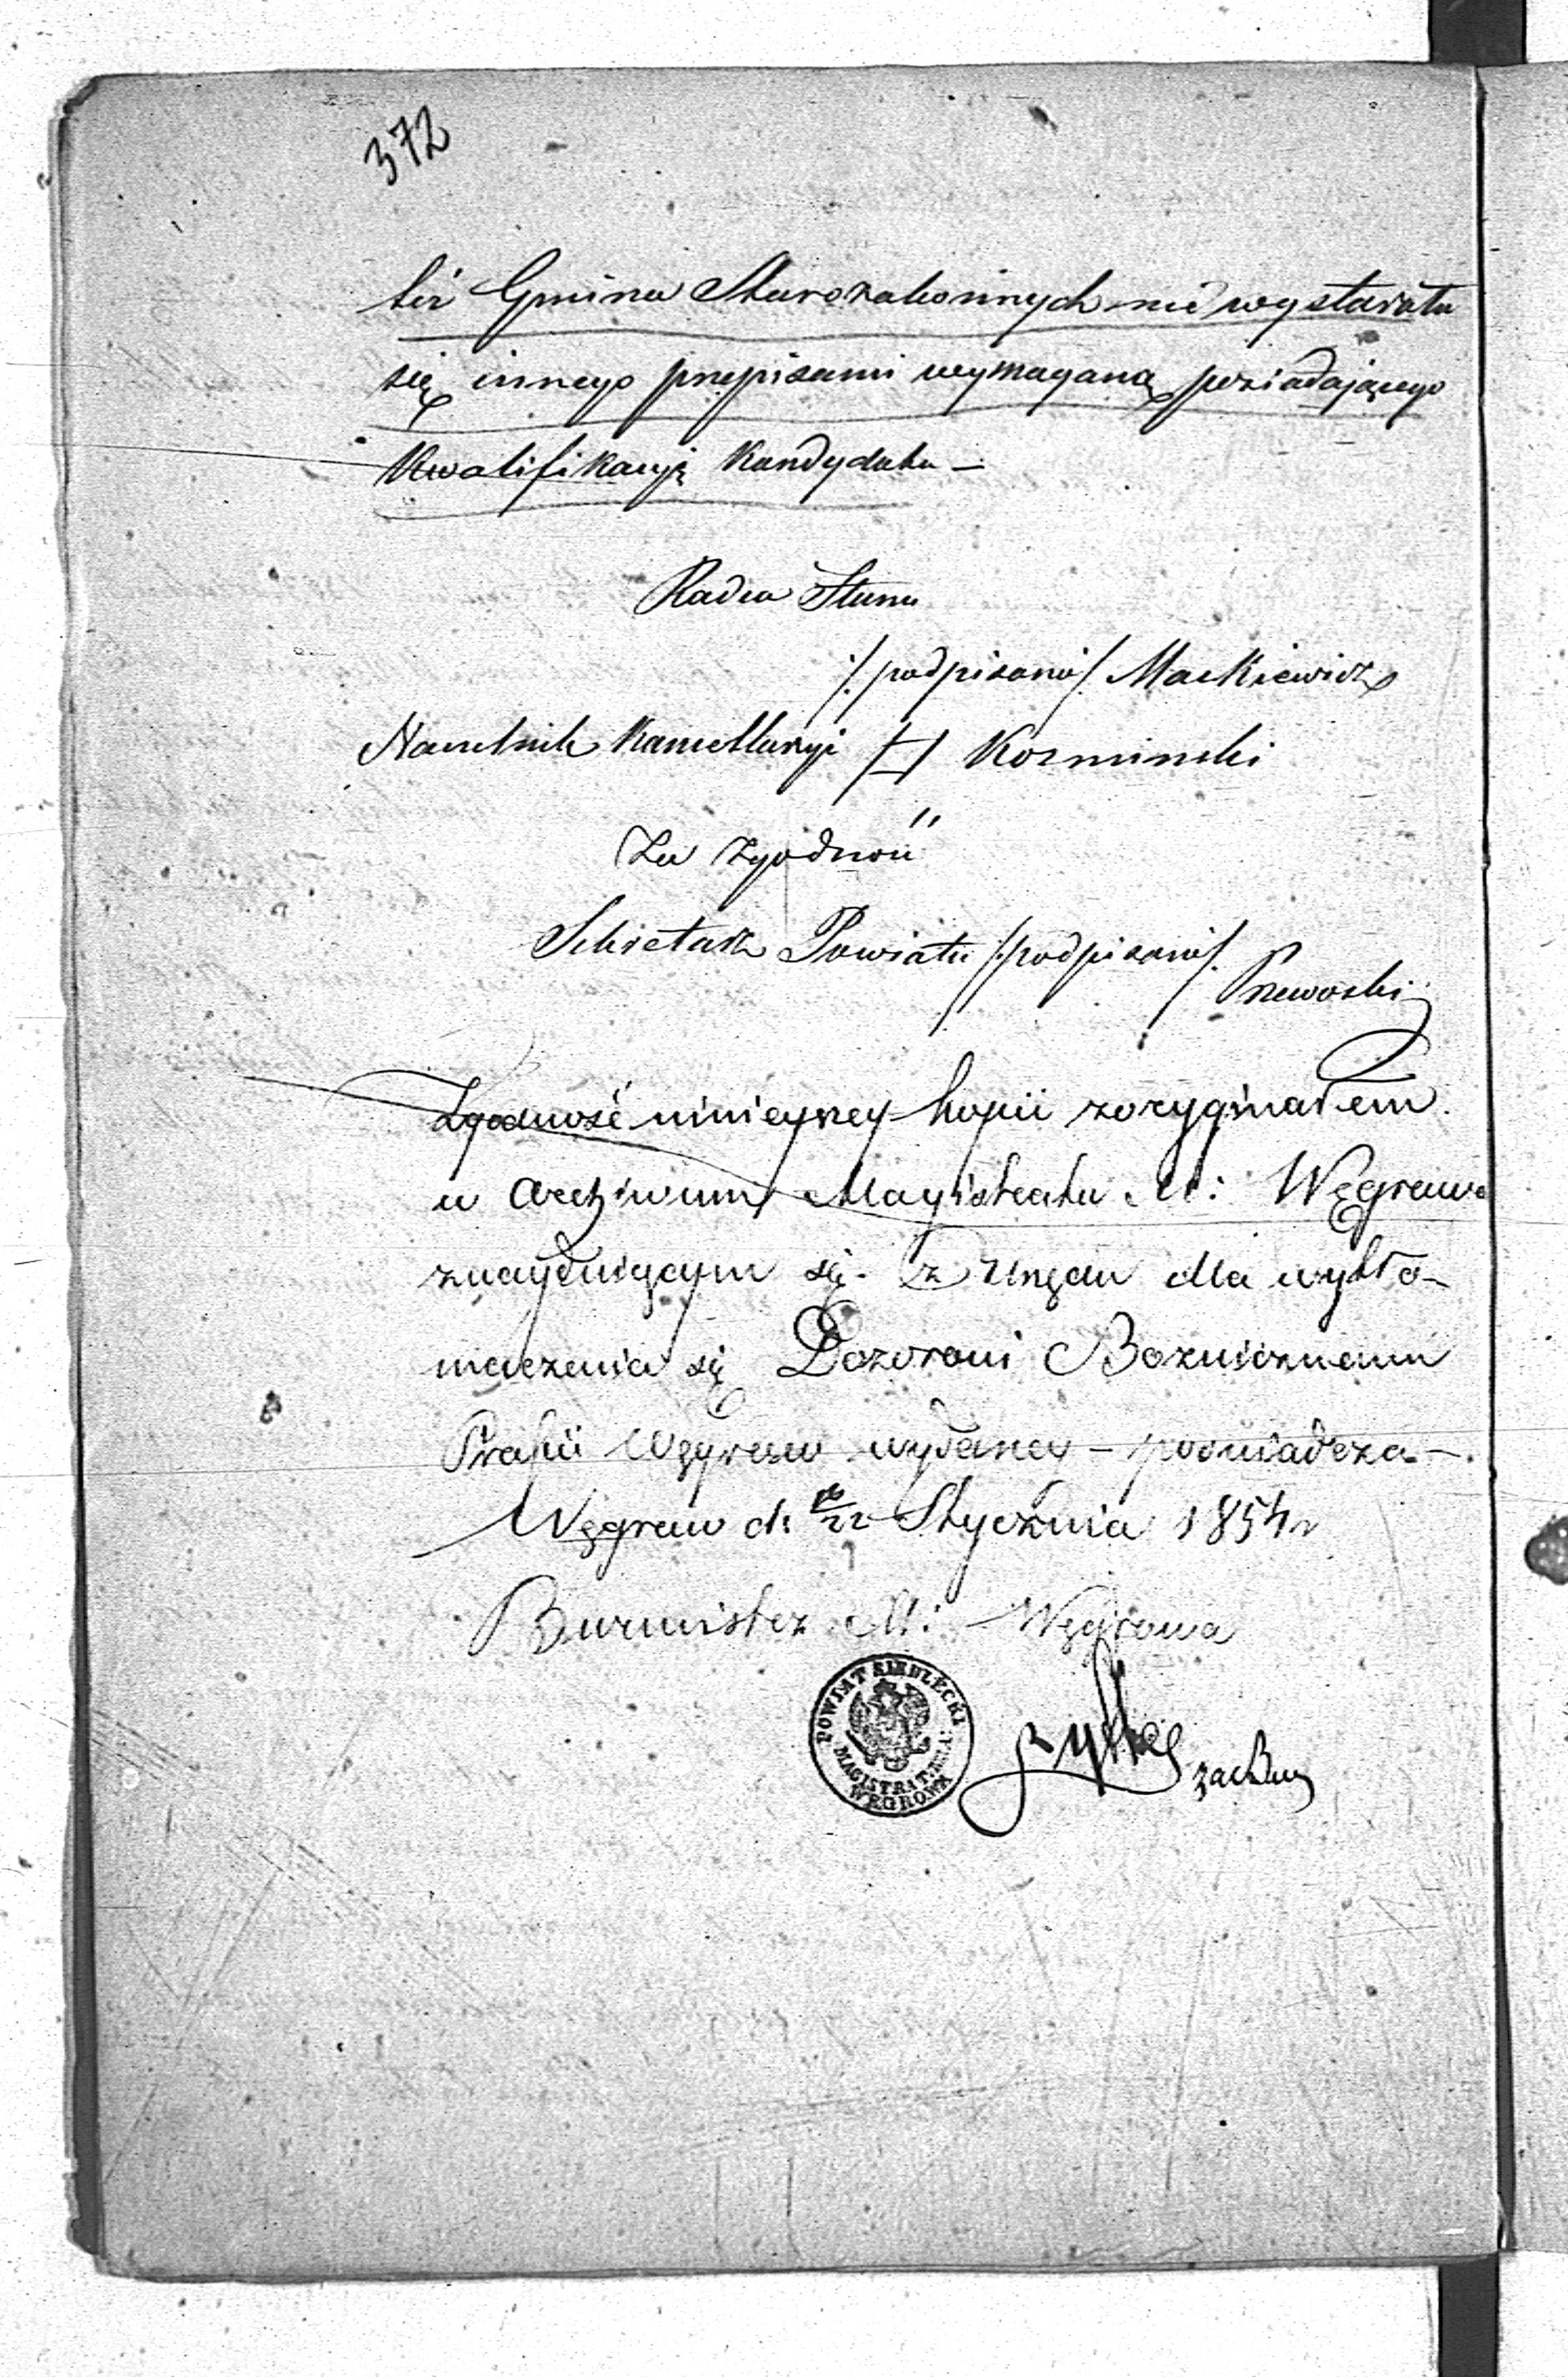 372
też Gmina Starozakonnych nie wystarała
się innego przepisami wymaganą posiadającego
Kwalifikacyją Kandydata –
Radca Stanu
/: podpisano :/ Mackiewicz
Naczelnik Kancellaryi /–/ Kozminski
Za Zgodność
Sekretarz Powiatu /: podpisano :/
Zgodność ninieyszey kopii z oryginałem
w Archiwum Magistratu M: Węgrowa
znayduiącym się z Urzędu dla wytło-
maczenia się Dozorowi Bożnicznemu
Parafii Węgrow wydaney – poświadcza –
Węgrow d: 10/22 Stycznia 1854 r
Burmistrz M: Węgrowa
POWIAT SIEDLECKI
MAGISTRAT MIA:
WĘGROWA